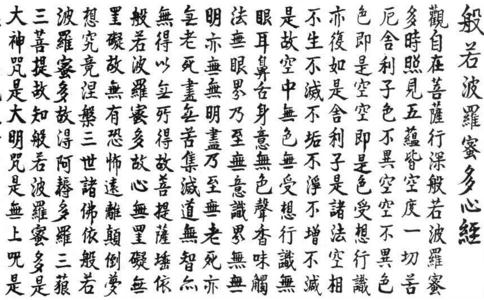 般若波羅蜜多心經
觀自在菩薩行深般若波羅蜜
多時照見五蘊皆空度一切苦
厄舍利子色不異空空不異色
色即是空空即是色受想行識
亦復如是舍利子是諸法空相
不生不滅不垢不淨不增不減
是故空中無色無受想行識無
眼耳鼻舌身意無色聲香味觸
法無眼界乃至無意識界無無
明亦無無明盡乃至無老死亦
無老死盡無苦集滅道無智亦
無得以無所得故菩提薩埵依
般若波羅蜜多故心無罣礙無
罣礙故無有恐怖遠離顛倒夢
想究竟涅槃三世諸佛依般若
波羅蜜多故得阿耨多羅三藐
三菩提故知般若波羅蜜多是
大神咒是大明咒是無上咒是